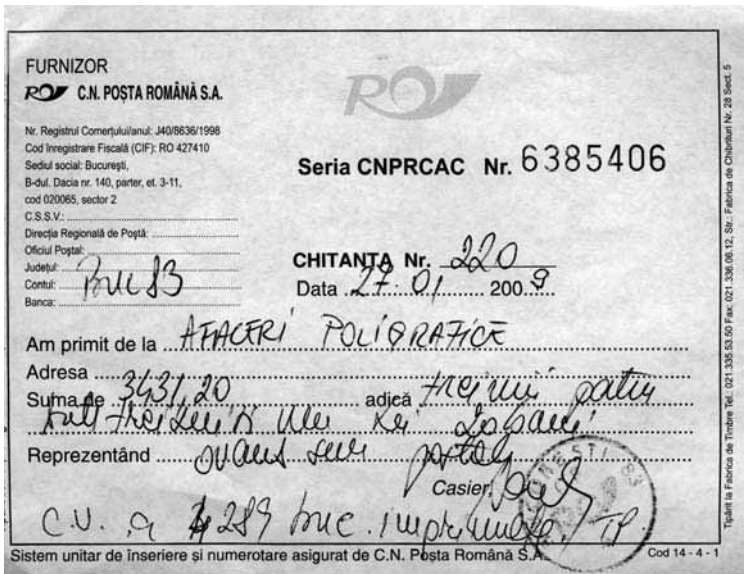 FURNIZOR
C.N. POȘTA ROMÂNĂ S.A.
Nr. Registrul Comerțului/anul: J40/8636/1998
Cod Inregistrare Fiscală (CIF): RO 427410
Sediul social: București,
B-dul. Dacia nr. 140, parter, et. 3-11,
cod 020065, sector 2
C.S.S.V.:
Direcția Regională de Poștă:
Oficiul Poștal:
Județul:
Contul: Buc 83
Banca:
Seria CNPRCAC Nr. 6385406
CHITANȚA Nr. 220
Data 27.01 2009
Am primit de la AFACERI POLIGRAFICE
Adresa
Suma de 3431,20 adică trei mii patru
sute treizeci și unu lei 20 bani
Reprezentând avans serv postale
Casier,
C.V. a 4289 buc. imprimate TP
Sistem unitar de înseriere și numerotare asigurat de C.N. Poșta Română S.A.
Cod 14 - 4 - 1
Tipărit la Fabrica de Timbre Tel.: 021.335.53.50 Fax: 021.336.06.12, Str.: Fabrica de Chibrituri Nr. 28 Sect. 5